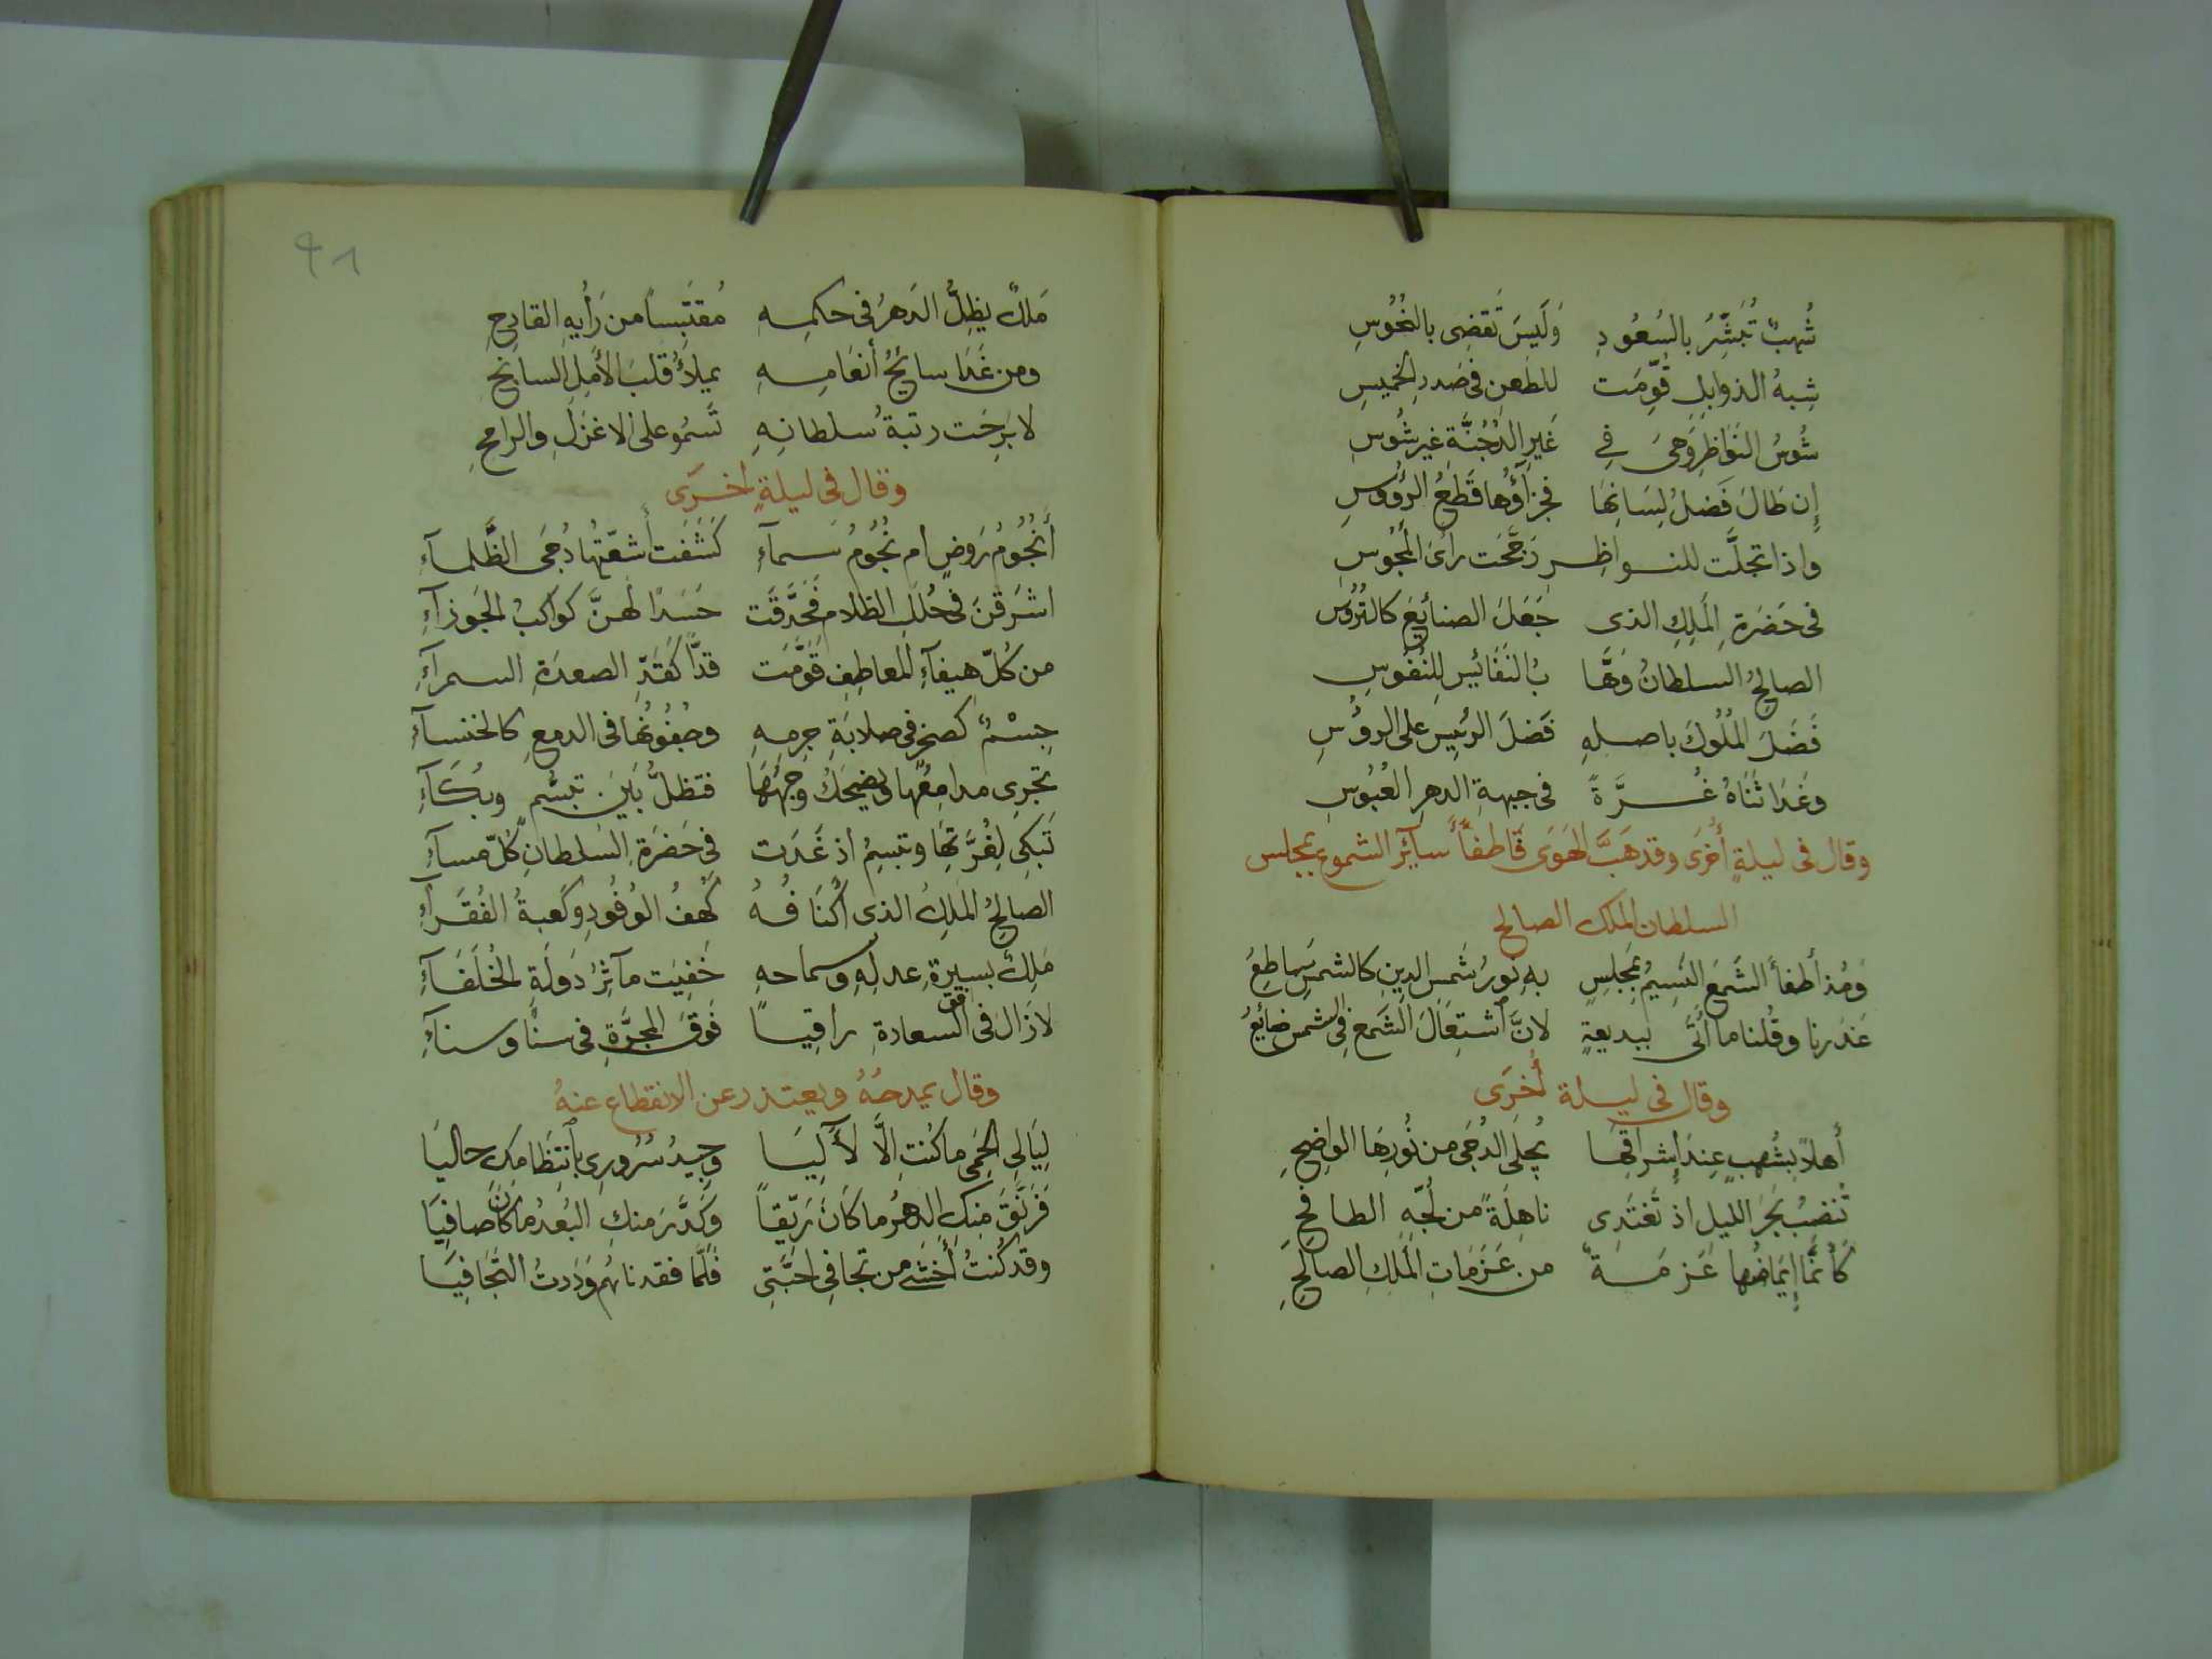 شُهبٌ تُبَشِّرُ بالسُعُودِ وَلَيسَ تَقضِى بالنُحُوسِ
شِبهُ الذوابلِ قُوِّمَت للطَعنِ فى صَدرِ الخميسِ
شُوسُ النَوَاظِرِ وَهىَ فِى غَيرِ الدُجُنَّةِ غيرشُوسِ
إِن طَالَ فَضلُ لِسَانِهَا فجزآؤُها قَطعُ الرؤُوسِ
واذا تجلَّت للنواظِرِ رَجَّحَت رأىَ المَجُوسِ
فى حَضرَةِ المَلِكِ الذى جَعَلَ الصنائِعَ كالتُرُوسِ
الصالحُ السلطانُ وَهَّا بُ النَفَائِسِ لِلنُفُوسِ
فَضَلَ المُلُوكَ باصلهِ فَضلَ الرئيسِ على الرؤُسِ
وغَدَا ثَنَاهُ غُرَّةً فى جبهةِ الدهرِ العُبُوسِ
وقال فى ليلةٍ أُخرَى وقد هَبَّ الهَوَى فَاطفَأَ سآئِرَ الشموع بمجلس
السلطان الملك الصالح
وَمُذ أَطفأَ الشَمعَ النَسِيمُ بمَجلِسٍ بهِ نُورُ شَمسِ الدِينِ كالشمسِ سَاطِعُ
عَذَرنا وقُلنا ما أَتَى ببديعةٍ لانَّ اشتِعَالَ الشَمعِ فِى الشمس ضائِعُ
وقال فى ليلة أُخرَى
أَهلاً بشُهبٍ عِندَ إِشراقِهَا يُجلَى الدُجَى من نُورِهَا الواضِحِ
تُنضِبُ بَحرَ الليلِ اذ تَغتَدِى ناهِلَةً من لُجّهِ الطافحِ
كَأَنَّمَا إِيمَاضُها عَزمَةٌ من عَزَمَاتِ المَلِكِ الصالحِ
٩١
مَلكٌ يظِلُّ الدَهرُ فى حكمهِ مُقتَبِساً من رَأيِهِ القادِحِ
ومن غَدَا سائحُ أَنعَامِهِ يملأُ قلبَ الأَمَلِ السابحِ
لا بَرِحَت رتبةُ سلطانِهِ تَسمُو على الاعْزَلِ والرامحِ
وقال فى ليلةٍ اخرَى
أَنجُومُ رَوضٍ ام نُجُومُ سَمآءِ كَشَفَت أَشعّتُها دُجَى الظَّلمآءِ
اشرَقنَ فى حُلَلِ الظلامِ فَحَدَّقَت حَسَدًا لَهنَّ كواكبُ الجَوزآءِ
من كُلّ هيفآءِ المعاطِفِ قَوَّمَت قدًّا كَقَدّ الصعدَةِ السمرآءِ
جِسْمٌ كصخرٍ فى صلابَةِ جِرمِهِ وجُفُونُها فى الدمعِ كالخنسآءِ
تجرِى مدامِعُها ويضحَكُ وَجهُهَا فتظلُّ بَينَ تبسُّمٍ وبُكَآءِ
تَبكِى لِفُرَّتهَا وتبسِمُ اذ غَدَت فى حَضرَةِ السُلطانِ كُلّ مسآءِ
الصالحُ المَلِكُ الذى اَكْنَافُهُ كَهفُ الوُفُودِ وكَعبةُ الفُقَرآءِ
مَلِكٌ بسيرةِ عدلِهِ وسماحهِ خَفِيَت مآثِرُ دَولَةِ الخُلَفَآءِ
لازال فى افق السعادةِ راقِياً فَوقَ المجرَّةِ فى سنًا وسنآءِ
وقال يمدحُهُ ويعتذر عن الانقطاع عنهُ
لَيَالى الحِمَى ما كُنتِ الَّا لَآَلِيَا وجِيدُ سُرُورِى بِانتِظَامِكِ حاليَا
فَرَنَّقَ مِنكِ الدهرُ ما كَانَ رَيّقاً وكَدَّرَ منكِ البُعدُ ما كَانَ صافِيَا
وقد كُنتُ أَخشَى من تجافِى احبَّتِى فَلَمَّا فقدناهُم وَدَدتُ التَجَافِيَا